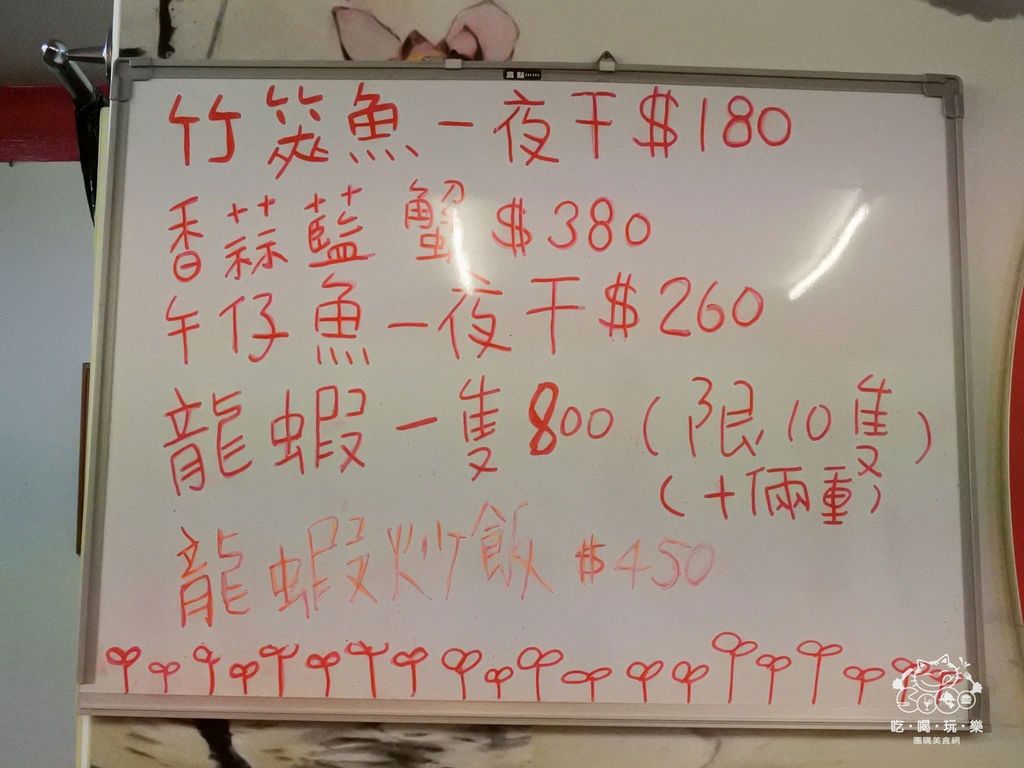 竹筴魚一夜干$180
香蒜藍蟹$380
午仔魚一夜干$260
龍蝦一隻800(限10隻)
(十倆重)
龍蝦炒飯$450
吃·喝·玩·樂
團購美食網